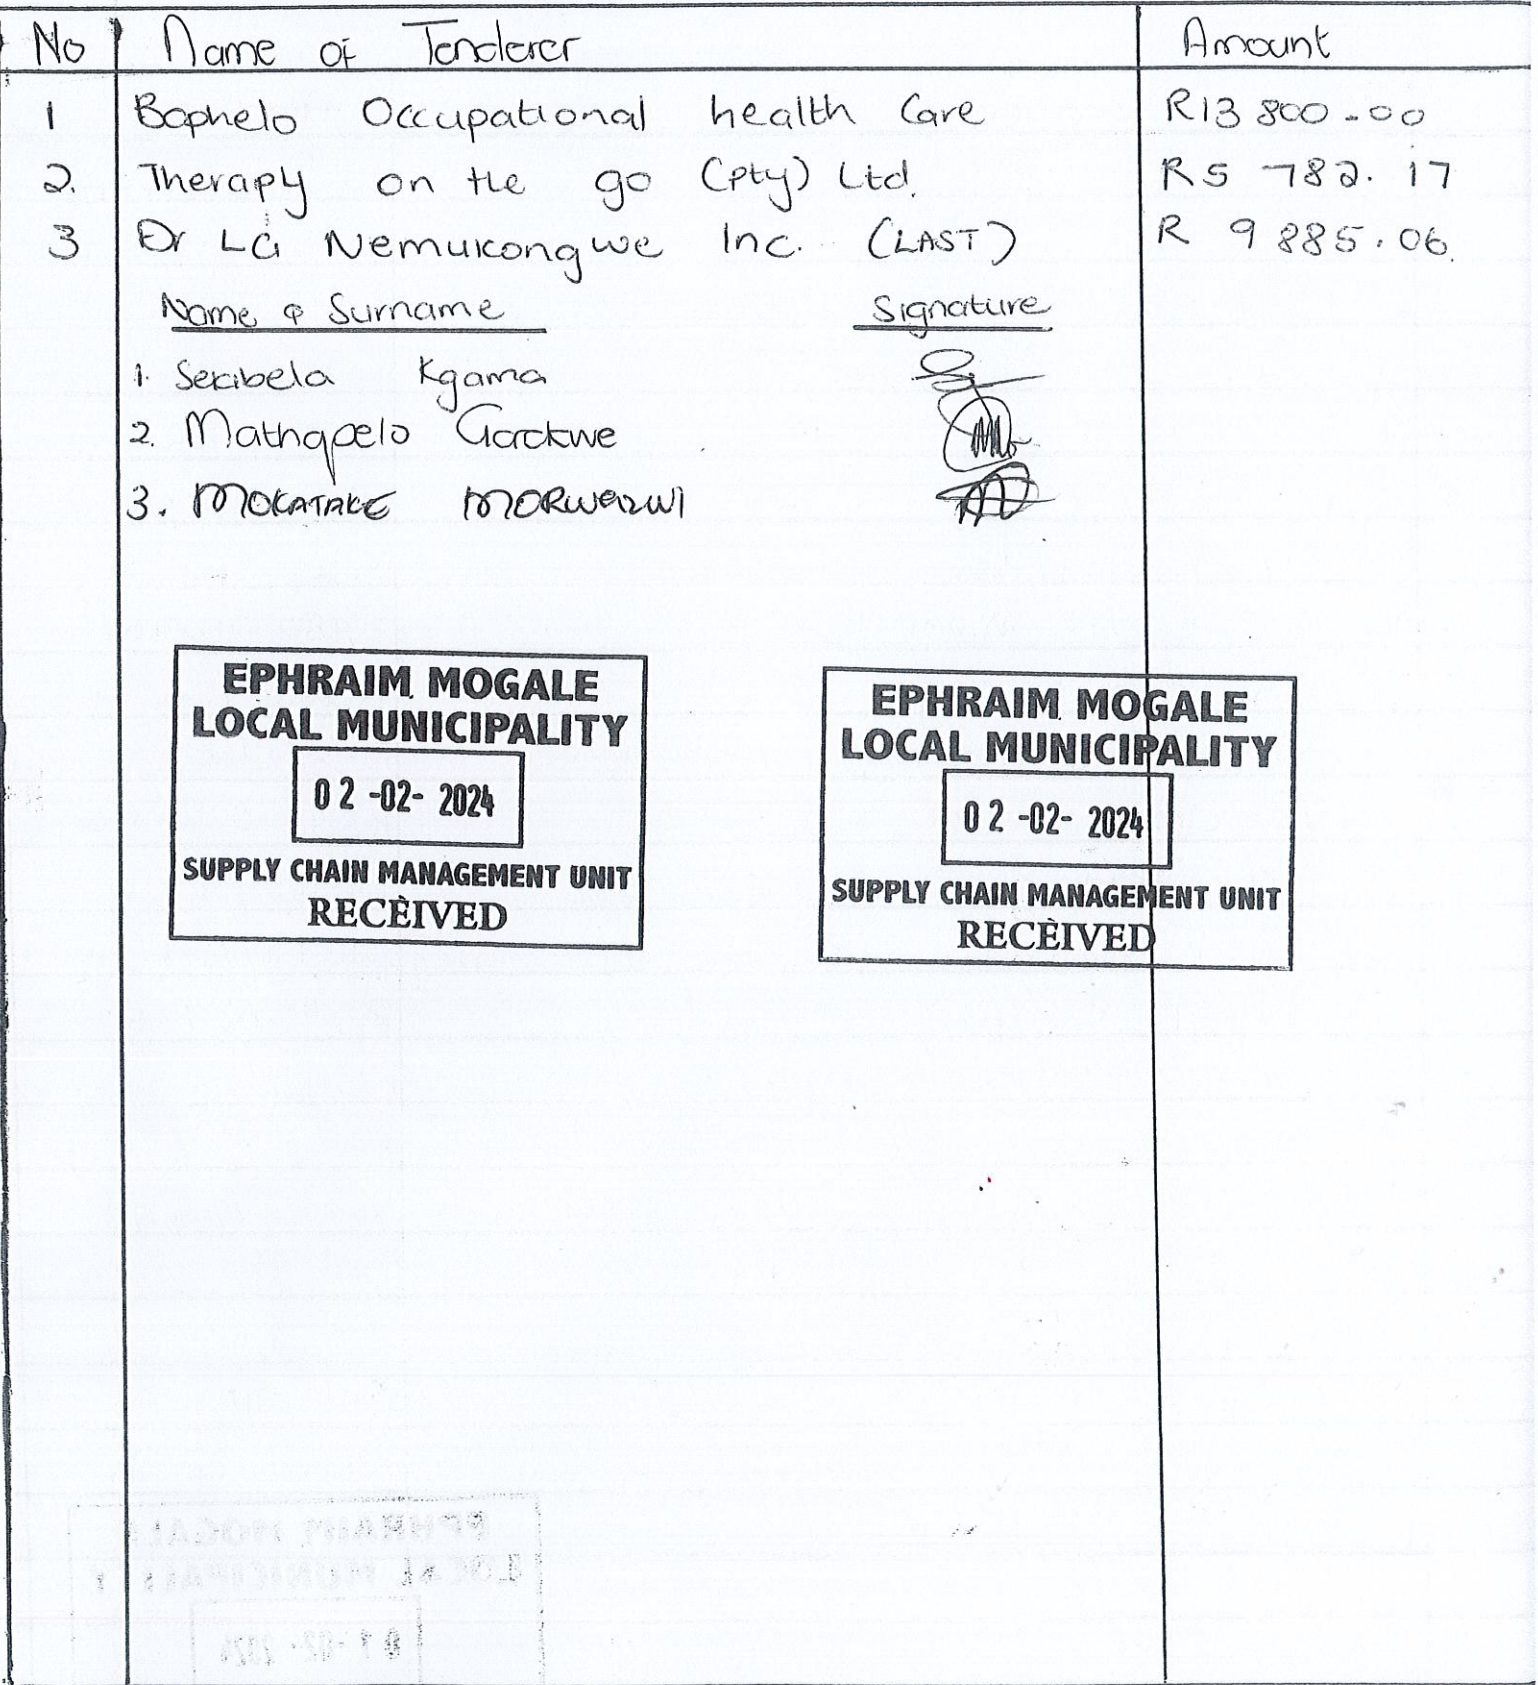 No Name of Tenderer Amount
1 Bophelo Occupational health Care R13 800-00
2. Therapy on the go (pty) Ltd. R5 782.17
3 Dr LG Nemukongwe Inc. (LAST) R 9 885.06
Name & Surname Signature
1. Sekibela Kgama
2. Mathapelo
3. MOKATAKE
EPHRAIM MOGALE
LOCAL MUNICIPALITY
02-02-2024
SUPPLY CHAIN MANAGEMENT UNIT
RECEIVED
EPHRAIM MOGALE
LOCAL MUNICIPALITY
02-02-2024
SUPPLY CHAIN MANAGEMENT UNIT
RECEIVED